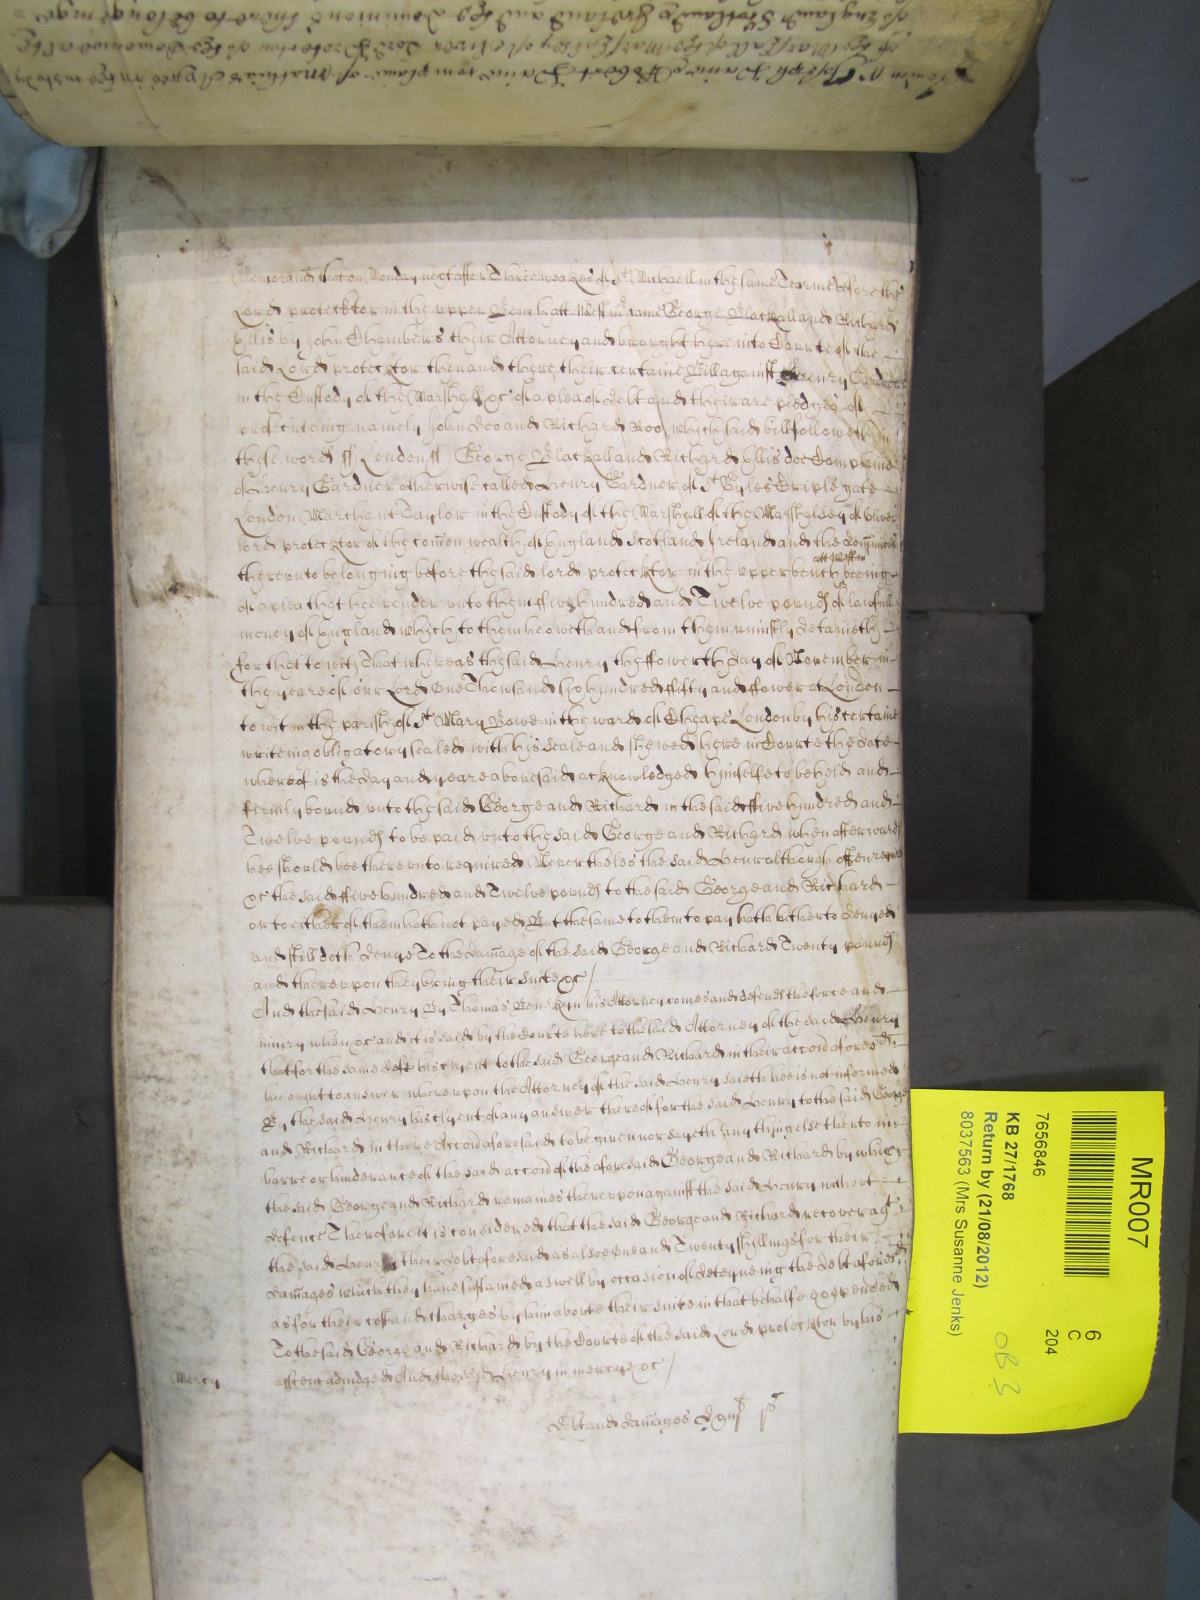 Memorand that on Monday next after Three weekes of St Michaell in the same Tearme before the
Lord protecktor in the upper Bench att Westm came George Blackall and Richard
Ellis by John Chambers their Attorney and brought here into Courte of the
said Lord protecktor then and there their certaine Bill against Henry Gardner
in the Custody of the Marshall &c of a plea of debt and their are pledges of
prosecuteing namely John Doo and Richard Roo which said bill followeth in
these words ss London ss George Blackall and Richard Ellis doe Complaine
of Henry Gardner otherwise called Henry Gardner of St Gyles Criplegate
London Marchant Taylor in the Custody of the Marshall of the Marshalsey of Oliver
lord protecktor of the comon wealth of England Scotland Ireland and the dominions
att Westm
thereunto belonging before the said lord protecktor in the upper bench beeing
of a plea that hee render unto them ffive hundred and Twelve pounds of lawfull
money of England which to them he oweth and from them uniustly detaineth
for that to wit That whereas the said Henry the ffowerth day of November in
the yeare of our Lord One Thowsand six hundred ffifty and ffower at London
to wit in the parish of St Mary Bowe in the ward of Cheape London by his certaine
writeing obligatory sealed with his seale and shewed here in Courte the date
whereof is the day and yeare abovesaid acknowledged himselfe to be held and
firmly bound unto the said George and Richard in the said ffive hundred and
Twelve pounds to be paid unto the said George and Richard when afterwards
hee should bee thereunto required Neverthelesthe said Henry although often required
&c the said ffive hundred and Twelve pounds to the said George and Richard
or to either of them hath not payed But the same to them to pay hath hitherto denyed
and still doth denye To the damage of the said George and Richard Twenty pounds
and thereupon they bring their suite &c
And the said Henry By Thomas his Attorney comes and defends the force and
iniury when &c and it is said by the Courte here to the said Attorney of the said Henry
that for the same Henry his clyent to the said George and Richard in their accon aforesd
hee ought to answer whereupon the Attorney of the said Henry saieth hee is not informed
By the said Henry his clyent of any answer thereof for the said Henry to the said George
and Richard in there Accon aforesaid to be given nor sayeth any thing else there to in
barre or hinderance of the said accon of the aforesaid George and Richard by which
the said George and Richard remaines thereupon against the said Henry without
defence Therefore it is considered that the said George and Richard recover agt
the said Henry their debt aforesaid as alsoe One and Twenty shillings for their
damages which they have sustained as well by occasion of deteyneing the debt aforesd
as for their costs and charges by him aboute their suite in that behalfe expended
To the said George and Richard by the Courte of the said Lord protecktor by his
Mercy
assent adiudged And the said Henry in mercye &c
debt and damages
MR007
6
C
204
7656846
KB 27/1768
Return by (21/08/2012)
8037563 (Mrs Susanne Jenks)
OB 3